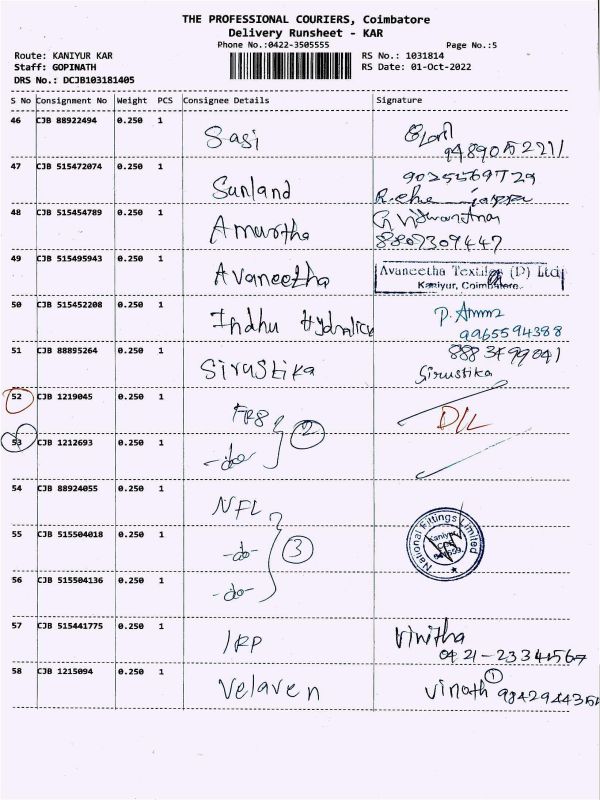 THE PROFESSIONAL COURIERS, Coimbatore
Delivery Runsheet - KAR
Phone No.:0422-3505555 Page No.:5
Route: KANIYUR KAR RS No.: 1031814
Staff: GOPINATH RS Date: 01-Oct-2022
DRS No.: DCJB103181405
S No Consignment No Weight PCS Consignee Details Signature
46 CJB 88922494 0.250 1 Sasi
47 CJB 515472074 0.250 1 Sunland 9025569729
48 CJB 515454789 0.250 1 Amurtha
8807309447
49 CJB 515495943 0.250 1 Avaneetha Avaneetha Textiles (P) Ltd
Kaniyur, Coimbatore.
50 CJB 515452208 0.250 1 Indhu Hydralics
9965594388
51 CJB 88895264 0.250 1 Sirustika
Sirustika
52 CJB 1219045 0.250 1 D/L
53 CJB 1212693 0.250 1 -do- 2
54 CJB 88924055 0.250 1 NFL
55 CJB 515504018 0.250 1 -do- 3 National Fittings Limited
Kaniyur
56 CJB 515504136 0.250 1 -do-
57 CJB 515441775 0.250 1 IRP Vinitha
0421-2334567
58 CJB 1215094 0.250 1 Velaven Vinoth 1